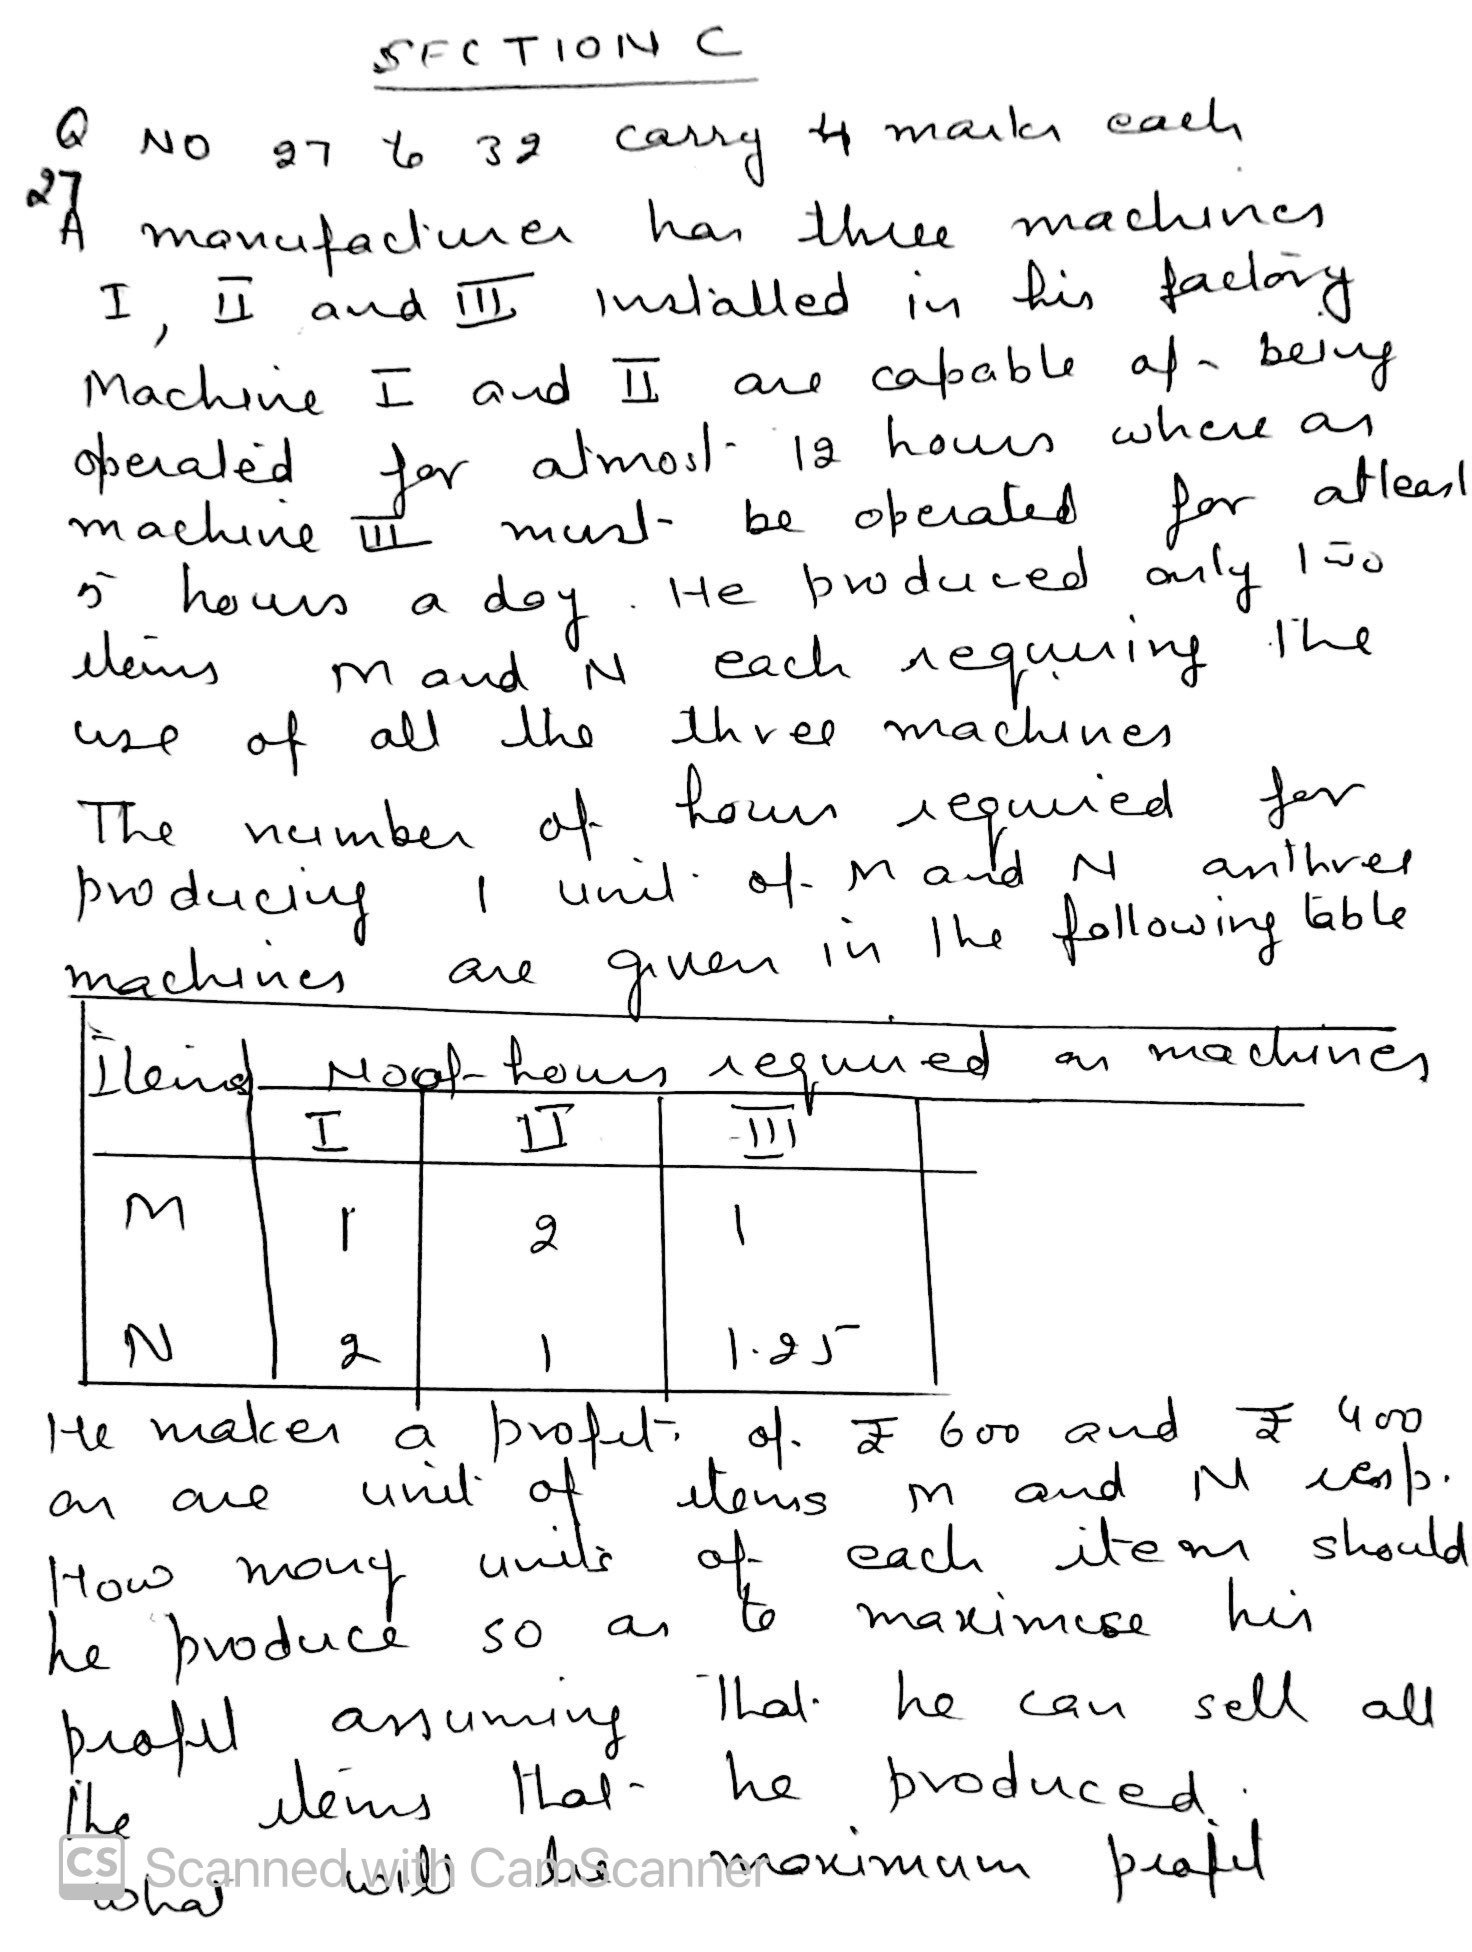 SECTION C
Q NO 27 to 32 carry 4 marks each
27
A manufacturer has three machines
I, II and III installed in his factory
Machine I and II are capable of being
operated for atmost 12 hours where as
machine III must be operated for atleast
5 hours a day. He produced only two
items M and N each requiring the
use of all the three machines
The number of hours required for
producing 1 unit of M and N on three
machines are given in the following table
Items No of hours required on machines
I II III
M 1 2 1
N 2 1 1.25
He makes a profit of ₹ 600 and ₹ 400
on one unit of items M and N resp.
How many units of each item should
he produce so as to maximise his
profit assuming that he can sell all
the items that he produced.
what will be maximum profit
CS Scanned with CamScanner